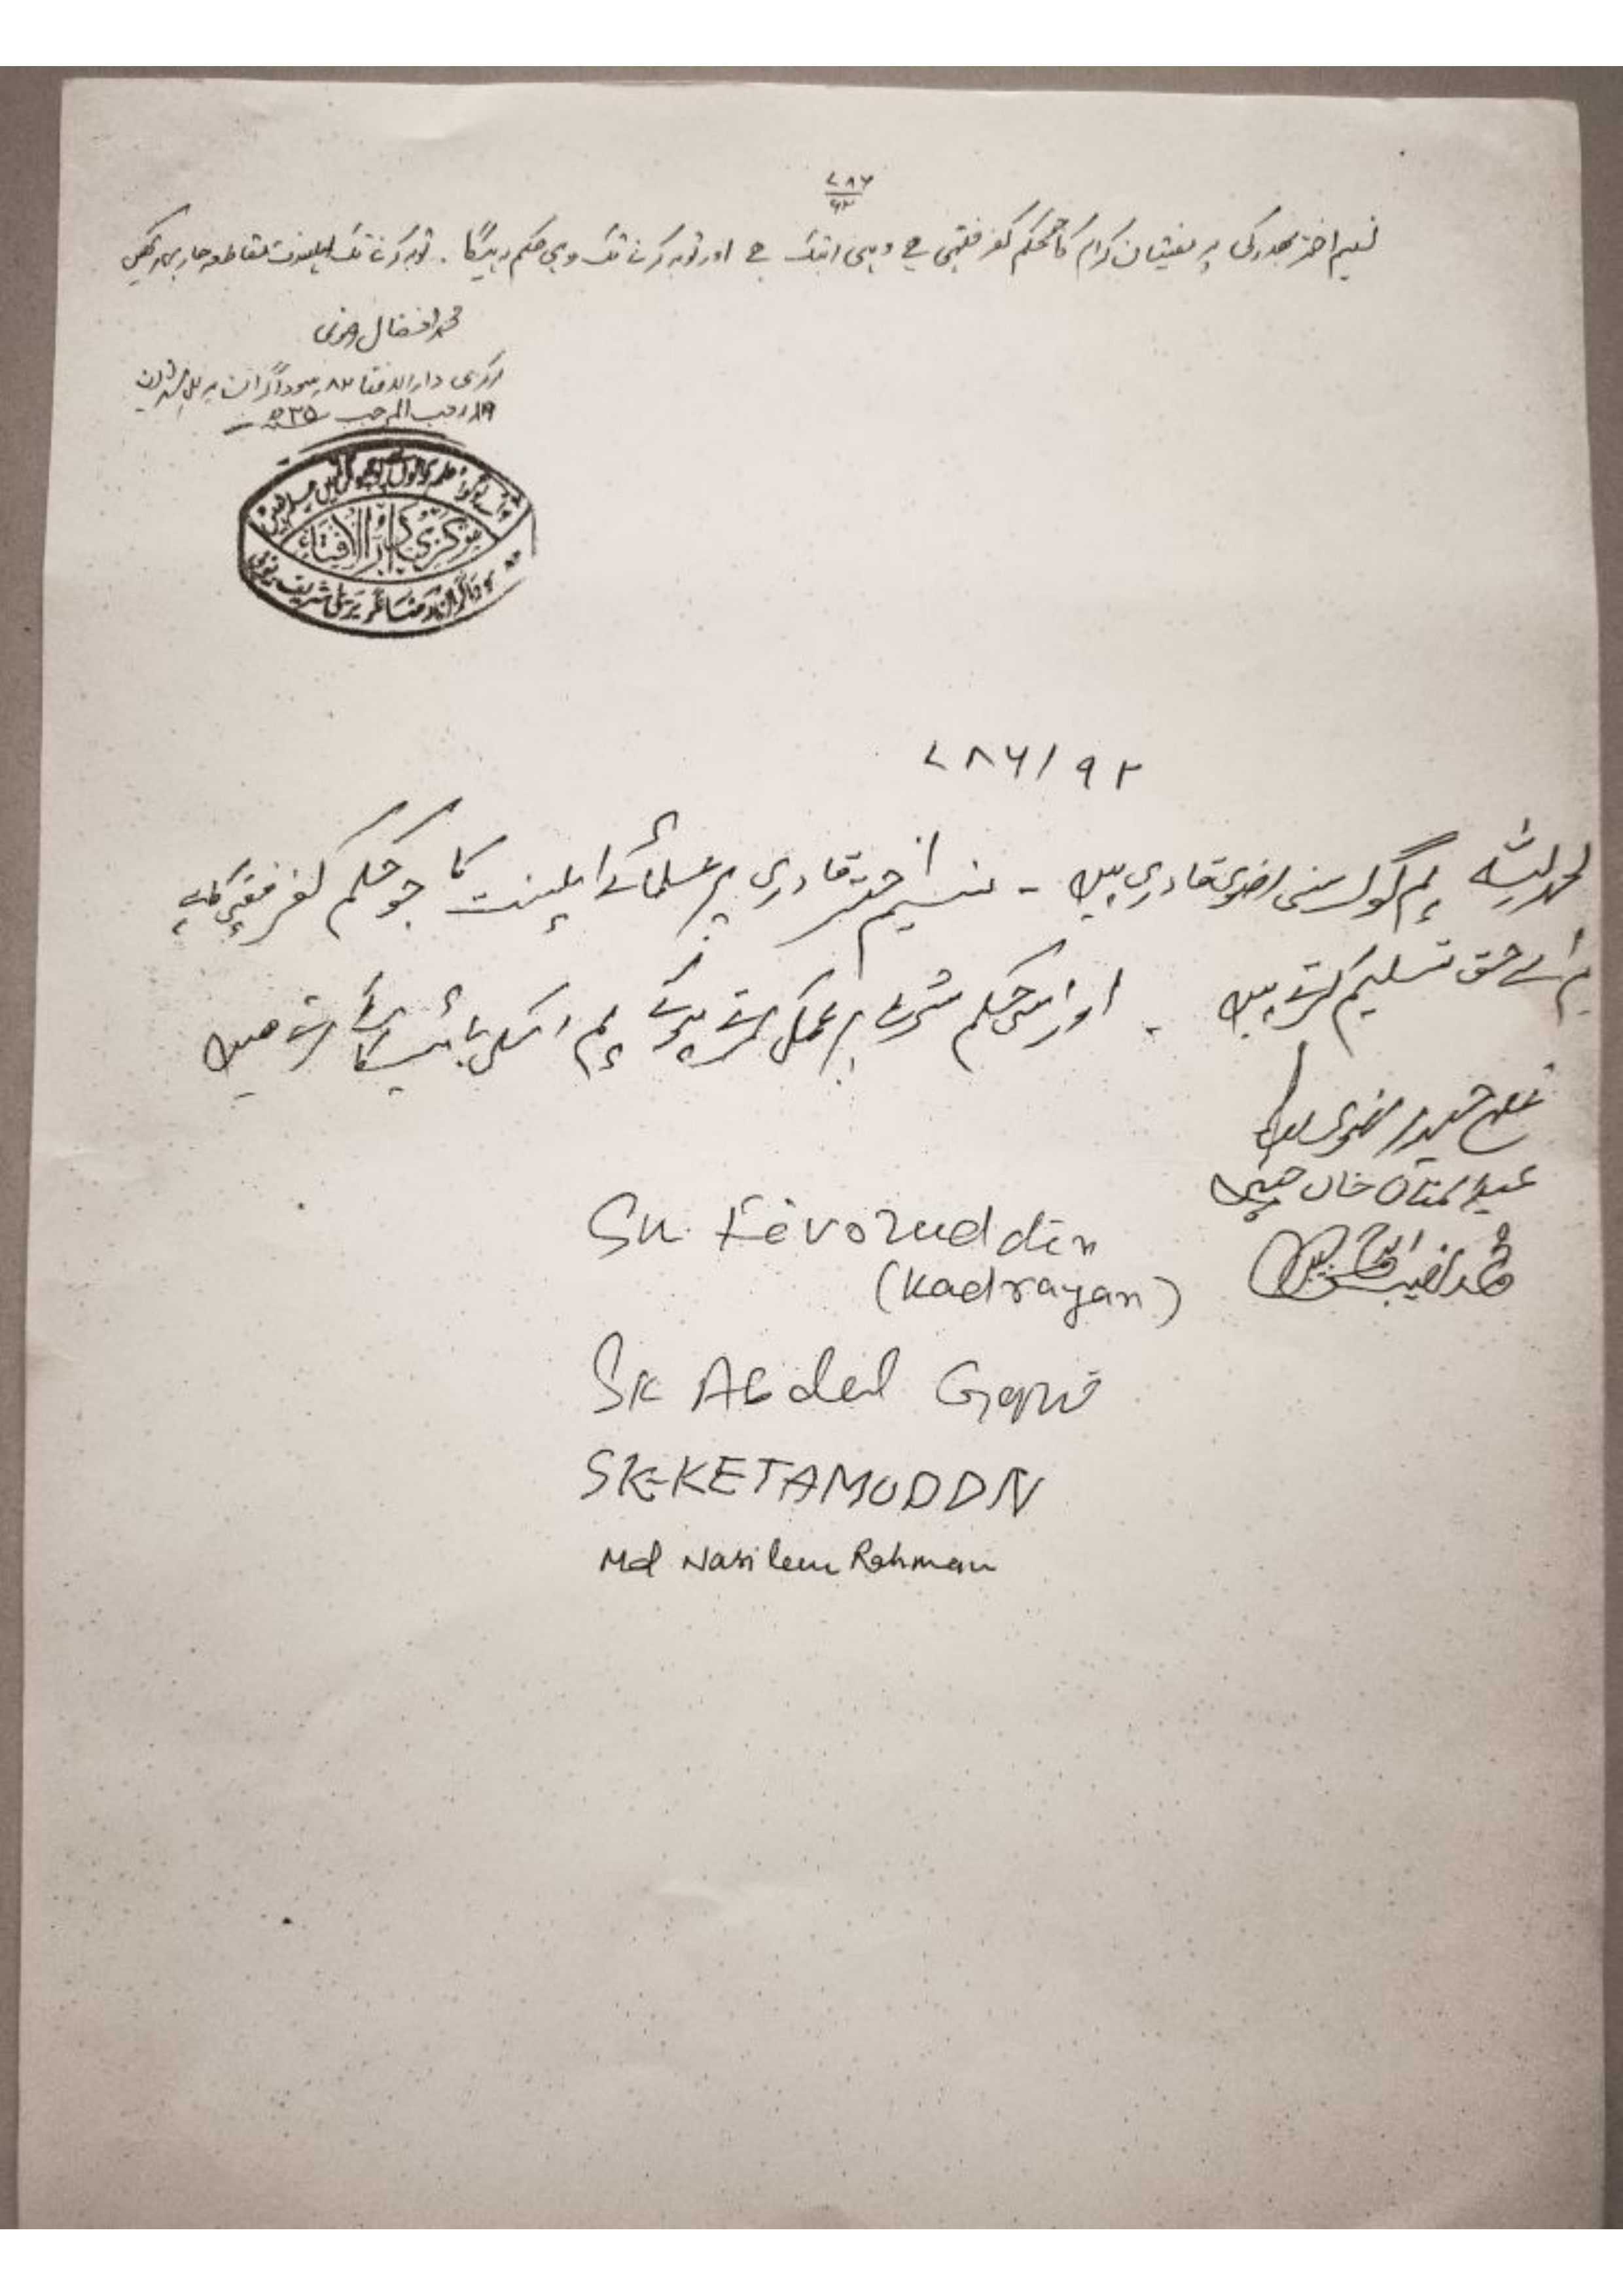 ۷۸۶
۹۲
نسیم اختر بھدرکی پر مفتیان کرام کا جو حکم کفر فقہی ہے وہی ابتک ہے اور توبہ کرنے تک وہی حکم رہیگا ۔ توبہ کرنے تک اہلسنت مقاطعہ جاری رکھیں
محمد افضال رضوی
مرکزی دارالافتا ۸۲ سوداگران بریلی شریف
۱۹ رجب المرجب
مرکزی دار الافتاء
سوداگران رضا نگر بریلی شریف یوپی
۷۸۶/۹۲
الحمد للہ ہم لوگ سنی رضوی قادری ہیں ۔ نسیم اختر قادری پر علمائے اہلسنت کا جو حکم کفر فقہی کا ہے
ہم اسے حق تسلیم کرتے ہیں ۔ اور اس حکم شرع پر عمل کرتے ہوئے ہم اسکی بائیکاٹ کرتے ہیں
غلام حیدر رضوی
عبد المنان خان حبیبی
محمد نصیب
Sk. Fevozuddin
(Kadrayan)
Sk Abdul Goni
SK-KETAMUDDN
Md Nasileu Rahman